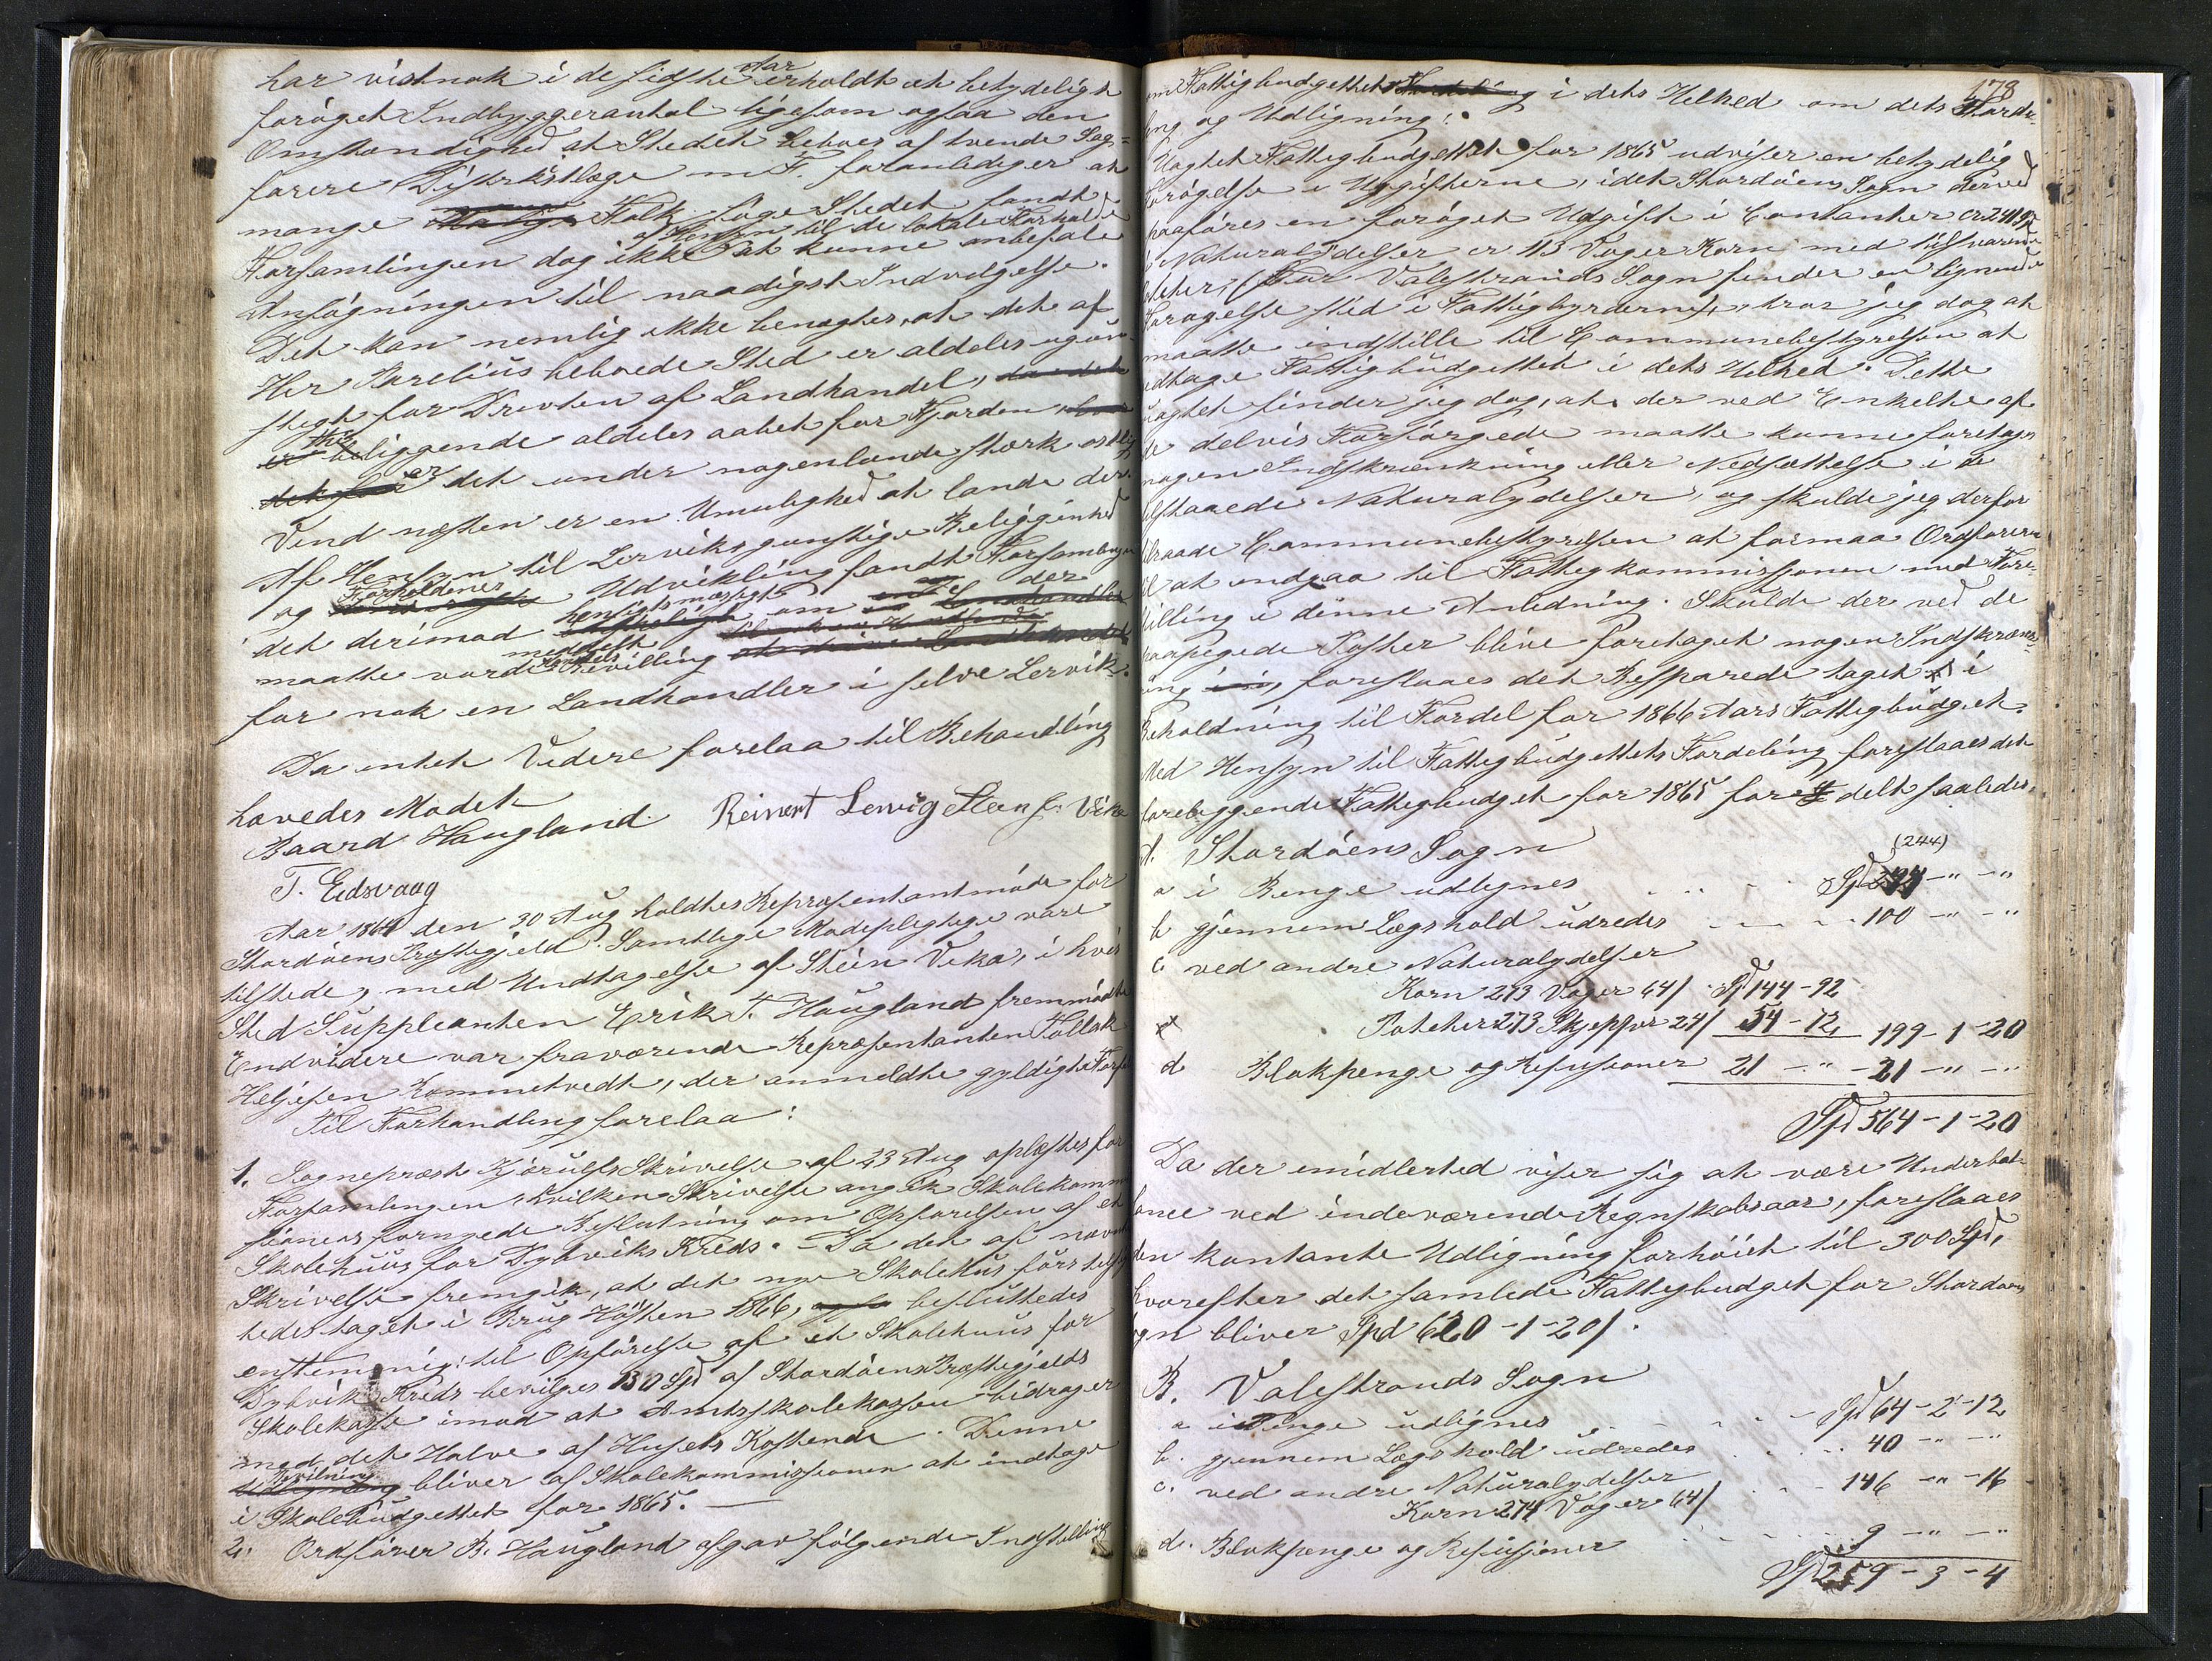 har vistnok i de sidste Aar erholdt et betydeligt
forøget Indbyggerantal ligesom ogsaa den
Omstændighed at Stedet beboes af tvende Sag=
førere Distriktslæge m. F. foranlediger at
mange Folk søge Stedet fandt
af Hensyn til de lokale Forholde
Forsamlingen dog ikke at kunne anbefale
Ansøgningen til naadigst Indvilgelse.
Det kan nemlig ikke benægtes, at det af
Her Parelius beboede Sted er aldeles ugun-
stigt for Driften af Landhandel,
thi beliggende aldeles aabet for Fjorden
er det under nogenlunde stærk østlig
Vind næsten er en Umulighed at lande der.
Af Hensyn til Lerviks gunstige Beliggenhed
og Forholdenes Udvikling fandt Forsamlingen
det derimod hensigtsmæssigt om der
maatte vorde meddelt Handels Bevilling
for nok en Landhandler i selve Lervik.
Da intet Videre forelaa til Behandling
hævedes Mødet
Baard Haugland. Reinert Lervig Steen J. Vika
T. Eidsvaag
Aar 1864 den 30 Aug holdtes Repræsentantmøde for
Stordøens Præstegjeld. Samtlige Mødepligtige vare
tilstede, med Undtagelse af Steen Vika, i hvis
Sted Suppleanten Erik T. Haugland fremmødte
Endvidere var fraværende Repræsentanten Tollak
Heljesen Rommetvedt, der anmeldte gyldigt Forfal
Til Forhandling forelaa:
1. Sognepræst Kjørulfs Skrivelse af 23 Aug oplæstes for
Forsamlingen, hvilken Skrivelse angik Skolekommis
sionens fornyede Beslutning om Opførelsen af et
Skolehuus for Dybviks Kreds. - Da det af nævnte
Skrivelse fremgik, at det nye Skolehus først
tedes taget i Brug Høsten 1866, besluttedes
enstemmig: til Opførelse af et Skolehuus for
Dybvik Kreds bevilges 130 Spd af Stordøens Præstegjelds
Skolekasse imod at Amtsskolekassen bidrager
med det Halve af Husets Kostende. Denne
Bevilgning bliver af Skolekommissionen at indtage
i Skolebudgettet for 1865. —
2. Ordfører B. Haugland afgav følgende Indstilling
178
om Fattigbudgettet i dets Helhed om dets Forde-
ling og Udligning:
Uagtet Fattigbudgettet for 1865 udviser en betydelig
Forøgelse i Udgifterne, idet Stordøens Sogn derved
paaføres en forøget Udgift i Contanter
i Naturalydelser er 43 Voger Korn med tilsvarende
Poteter; (For Valestrands Sogn finder en lignende
Forøgelse sted i Fattigbyrderne), tror jeg dog at
maatte indstille til Communebestyrelsen at
vedtage Fattigbudgettet i dets Helhed. Dette
uagtet finder jeg dog, at der ved Enkelte af
de delvis Forsørgede maatte kunne foretages
nogen Indskrænkning eller Nedsættelse i de
tilstaaede Naturalydelser, og skulde jeg derfor
tilraade Communebestyrelsen at formaa Ordføreren
til at indgaa til Fattigkommissionen med Fore-
stilling i denne Anledning. Skulde der ved de
paapegede Poster blive foretaget nogen Indskrænk-
ning foreslaaes det Besparede taget i
Beholdning til Fordel for 1866 Aars Fattigbudget.
Med Hensyn til Fattigbudgettets Fordeling foreslaaes det
foreliggende Fattigbudget for 1865 fordelt saaledes,
A. Stordøens Sogn
(244)
a i Penge udlignes Spd 244 - " - "
b gjennem Lægshold udredes 100 - " - "
c ved andre Naturalydelser
Korn 273 Voger 64/ Spd 144 - 92
Poteter 273 Skjepper 24/ 54 - 72 199 - 1 - 20
d Blokpenge og Refusioner 21 - " - 21 - " - "
Spd 564 - 1 - 20
Da der imidlertid viser sig at være Underbal-
ance ved indeværende Regnskabsaar, foreslaaes
den kontante Udligning forhøiet til 300 Spd,
hvorefter det samlede Fattigbudget for Stordøens
Sogn bliver Spd 620 - 1 - 20/.
B. Valestrands Sogn
a i Penge udlignes Spd 64 - 2 - 12
b. gjennem Lægshold udredes 40 - " - "
c. ved andre Naturalydelser 146 - " - 16
Korn 274 Voger 64/
d. Blokpenge og Refusjoner 9 - " - "
Spd 259 - 3 - 4